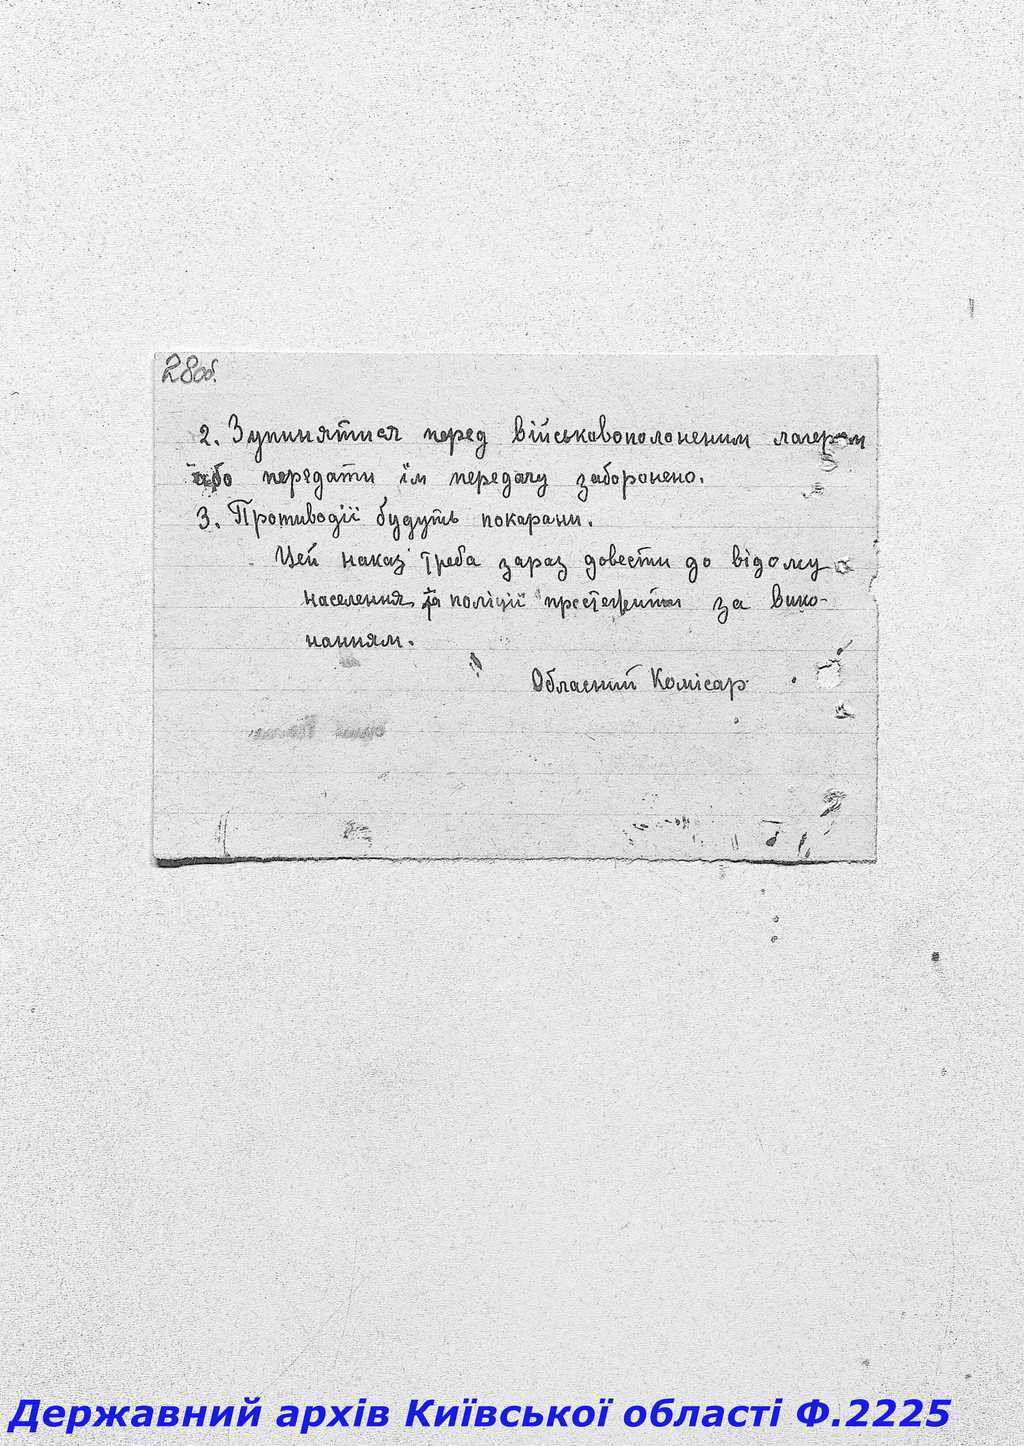 28 об.
2. Зупинятися перед військавополоненим лагерем
або передати їм передачу заборонено.
3. Противодії будуть покарани.
Цей наказ треба зараз довести до відому
населення, та поліції простежити за вико-
нанням.
Обласний Комісар
Державний архів Київської області Ф.2225